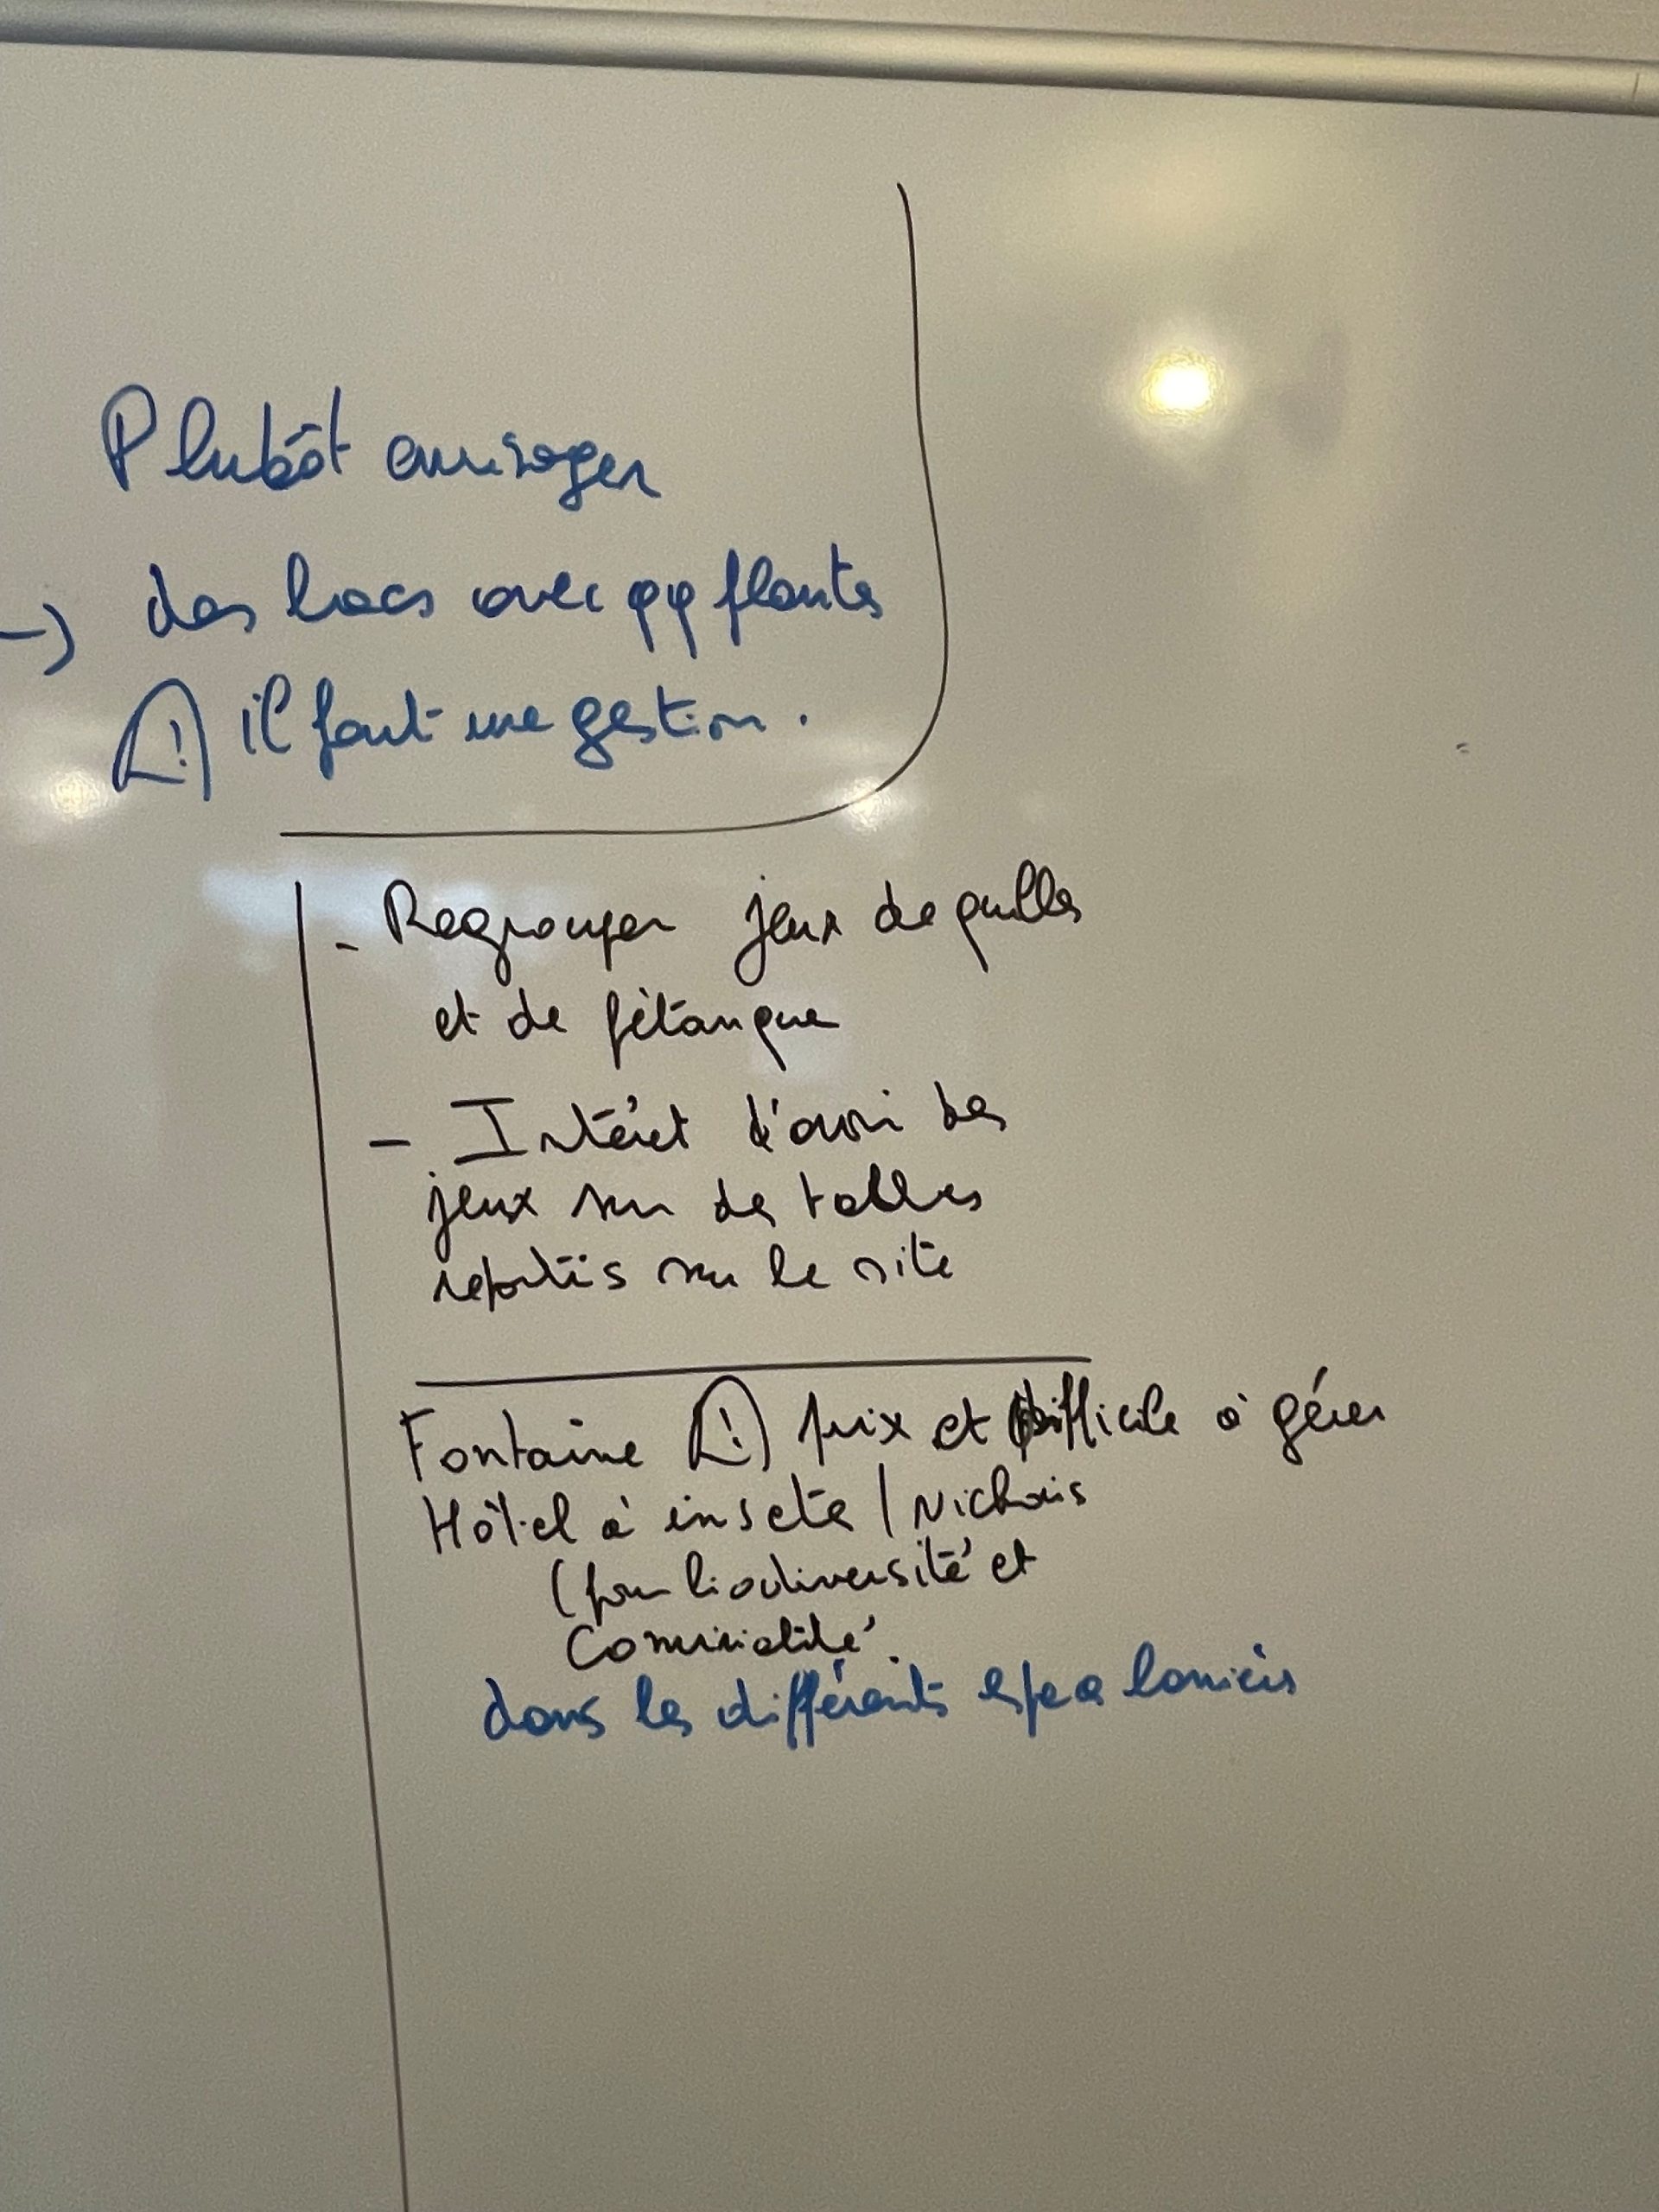 Plutôt envisager
→ des bacs avec qq plantes
⚠ il faut une gestion.
- Regrouper jeux de quilles
et de pétanque
- Intérêt d'avoir des
jeux sur des tables
répartis sur le site
Fontaine ⚠ prix et difficile à gérer
Hôtel à insecte / Nichoirs
(pour biodiversité et
convivialité.
dans les différents espace